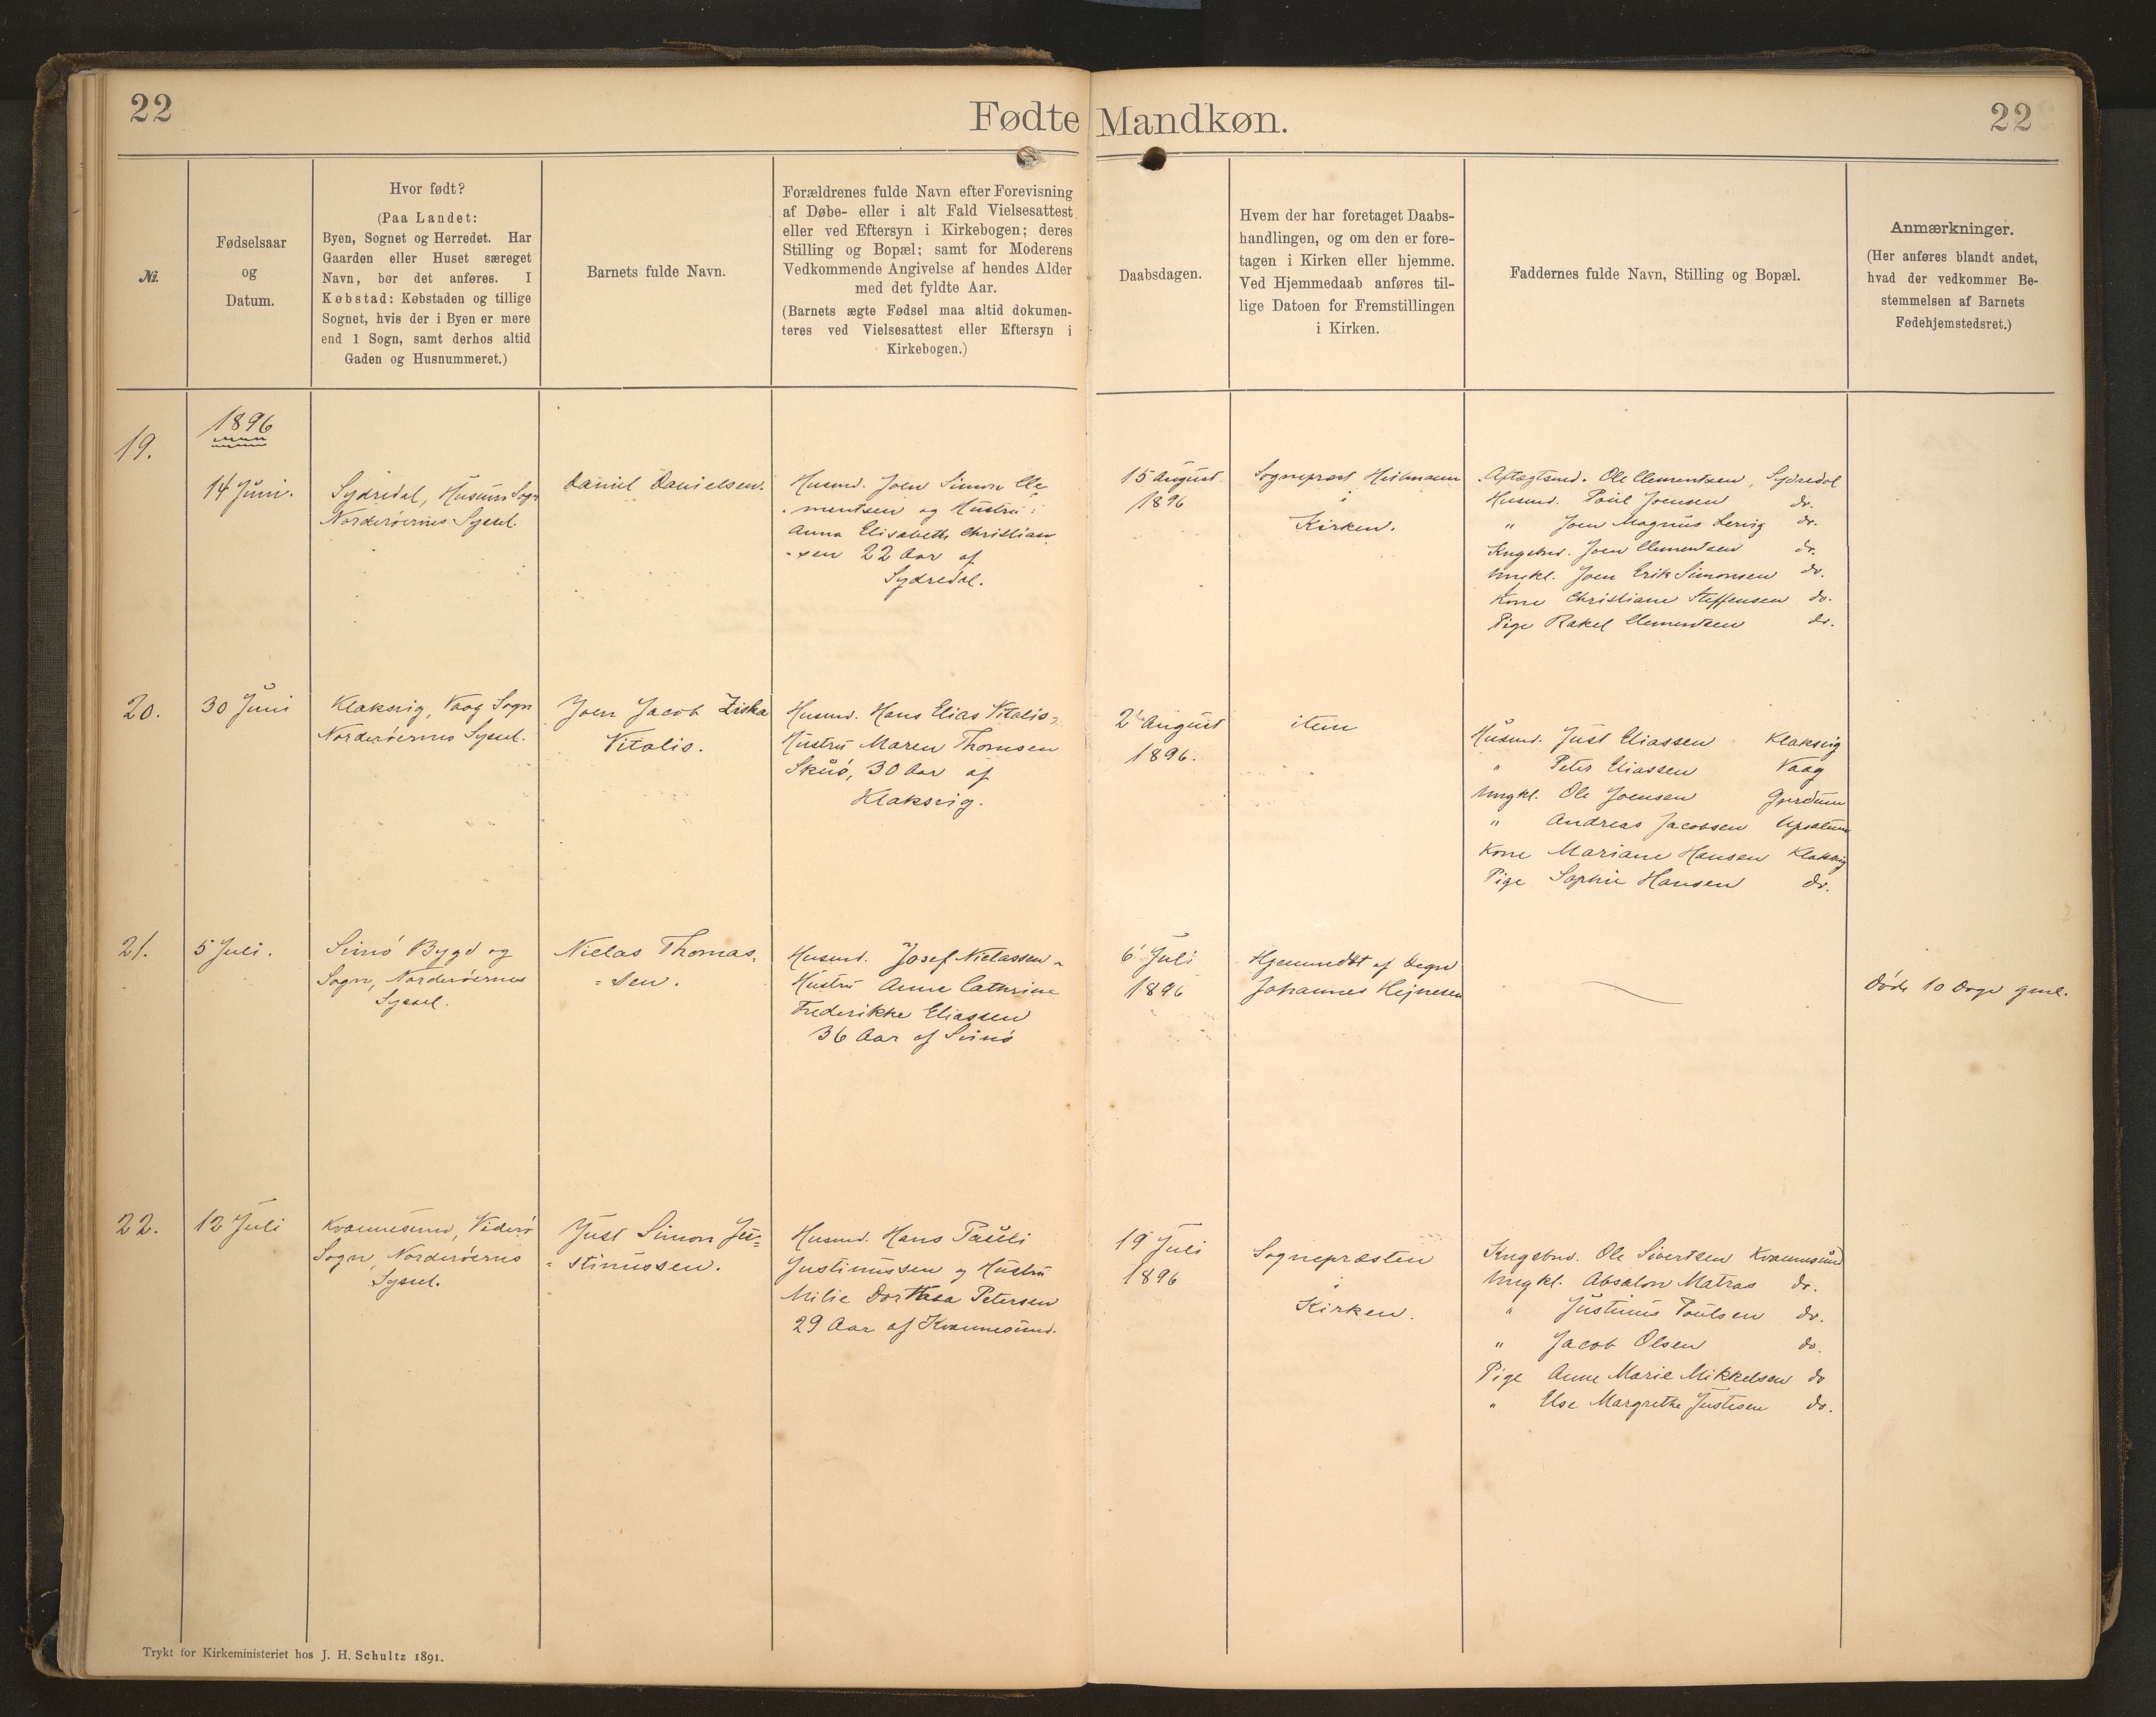 22
Fødte Mandkøn.
22
Nr.
Fødselsaar
og
Datum.
Hvor født?
(Paa Landet:
Byen, Sognet og Herredet. Har
Gaarden eller Huset særeget
Navn, bør det anføres. I
Købstad: Købstaden og tillige
Sognet, hvis der i Byen er mere
end 1 Sogn, samt derhos altid
Gaden og Husnummeret.)
Barnets fulde Navn.
Forældrenes fulde Navn efter Forevisning
af Døbe- eller i alt Fald Vielsesattest
eller ved Eftersyn i Kirkebogen; deres
Stilling og Bopæl; samt for Moderens
Vedkommende Angivelse af hendes Alder
med det fyldte Aar.
(Barnets ægte Fødsel maa altid dokumen-
teres ved Vielsesattest eller Eftersyn i
Kirkebogen.)
Daabsdagen.
Hvem der har foretaget Daabs-
handlingen, og om den er fore-
tagen i Kirken eller hjemme.
Ved Hjemmedaab anføres til-
lige Datoen for Fremstillingen
i Kirken.
Faddernes fulde Navn, Stilling og Bopæl.
Anmærkninger.
(Her anføres blandt andet,
hvad der vedkommer Be-
stemmelsen af Barnets
Fødehjemstedsret.)
19.
1896
14 Juni.
Sydredal, Husum Sogn
Norderöernes Syssel.
Daniel Danielsen.
Husmd. Joen Simon Cle-
-mentsen og Hustru:
Anna Elisabeth Christian
-sen 22 Aar af
Sydredal.
15 August
1896
Sognepræst Heilmann
i
Kirken.
Aftægtsmd. Ole Clementsen, Sydredal
Husmd. Poul Joensen do.
" Joen Magnus Lervig do.
Kngsbnd. Joen Clementsen do.
Ungkl. Joen Erik Simonsen do.
Kone Christiane Steffensen do.
Pige Rakel Clementsen do.
20.
30 Juni
Klaksvig, Vaag Sogn
Norderöernes Syssel.
Joen Jacob Ziska
Vitalis.
Husmd. Hans Elias Vitalis,
Hustru Maren Thomsen
Skuö, 30 Aar af
Klaksvig.
2 August
1896.
item
Husmd. Just Eliassen Klaksvig
" Peter Eliassen Vaag
Ungkl. Ole Joensen Gjerdum
" Andreas Jacobsen Upsalum
Kone Mariane Hansen Klaksvig
Pige Sophie Hansen do.
21.
5 Juli.
Svinö Bygd og
Sogn, Norderöernes
Syssel.
Niclas Thomas-
=sen.
Husmd. Josef Niclassen -
Hustru Anne Cathrine
Frederikke Eliassen
36 Aar af Svinö
6 Juli
1896
Hjemmedbt af Degn
Johannes Hejnesen
Døde 10 Dage gml.
22.
12 Juli
Kvannesund, Viderö
Sogn, Norderöernes
Syssel.
Just Simon Ju=
=stinussen.
Husmd. Hans Pauli
Justinussen og Hustru
Milie Dorthea Petersen
29 Aar af Kvannesund.
19 Juli
1896
Sognepræsten
i
Kirken.
Kngsbnd. Ole Sivertsen Kvannesund
Ungkl. Absalon Matras do.
" Justinus Poulsen do.
" Jacob Olsen do.
Pige Anne Marie Mikkelsen do
" Else Margrethe Justesen do.
Trykt for Kirkeministeriet hos J. H. Schultz 1891.